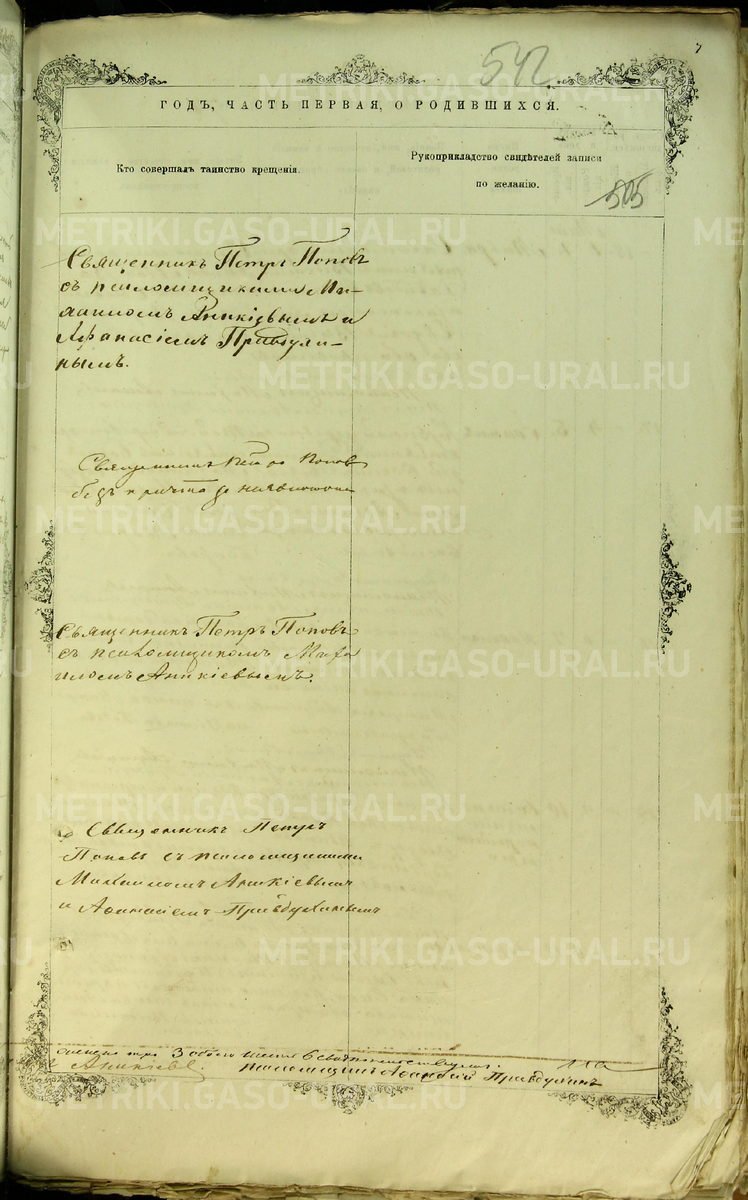 7
542
ГОДЪ, ЧАСТЬ ПЕРВАЯ, О РОДИВШИХСЯ.
Кто совершалъ таинство крещенія.
Рукоприкладство свидѣтелей записи
по желанію.
505
Священникъ Петръ Поповъ
съ псаломщиками Ми-
хаиломъ Аникіевымъ и
Афанасіемъ Правдухи-
нымъ.
Священникъ Петръ Попов
безъ причта
Священникъ Петръ Поповъ
съ псаломщикомъ Миха
иломъ Аникіевымъ.
Священникъ Петръ
Поповъ съ псаломщиками
Михаиломъ Аникіевымъ
и Афанасіемъ Правдухинымъ
3 обоего
Аникіевъ. псаломщикъ Правдухинъ
METRIKI.GASO-URAL.RU